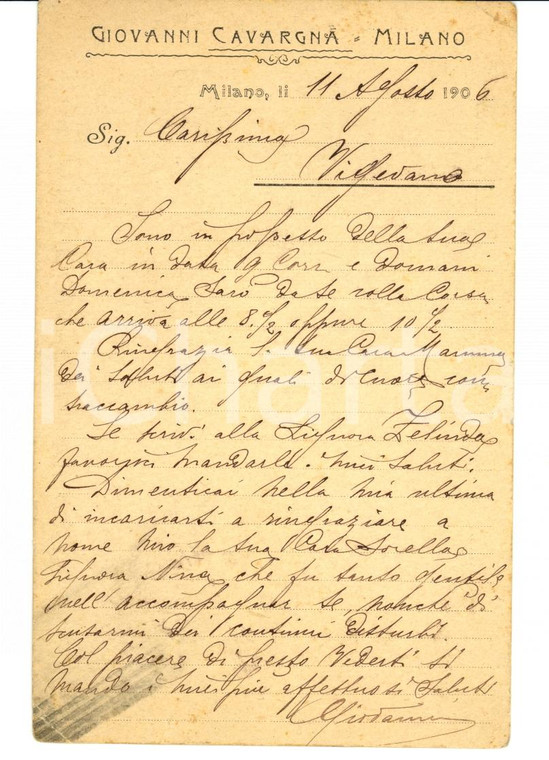 GIOVANNI CAVARGNA - MILANO
Milano, li 11 Agosto 1906
Sig. Carissima
Vigevano
Sono in possesso della tua
Cara in data 9 Corr. e Domani
Domenica Sarò da te colla Corsa
che arriva alle 8.1/2 oppure 10 1/2
Ringrazia la tua Cara Mamma
dei saluti ai quali di cuore con-
traccambio.
Se scrivi alla Signora Zelinda
favorisci mandarle i miei saluti.
Dimenticai nella mia ultima
di incaricarti a ringraziare a
nome mio la tua Cara Sorella
Signora Nina che fu tanto gentile
nell'accompagnar te, nonchè di
scusarmi dei continui disturbi.
Col piacere di presto vederti ti
mando i miei più affettuosi saluti
Giovanni
iCharta